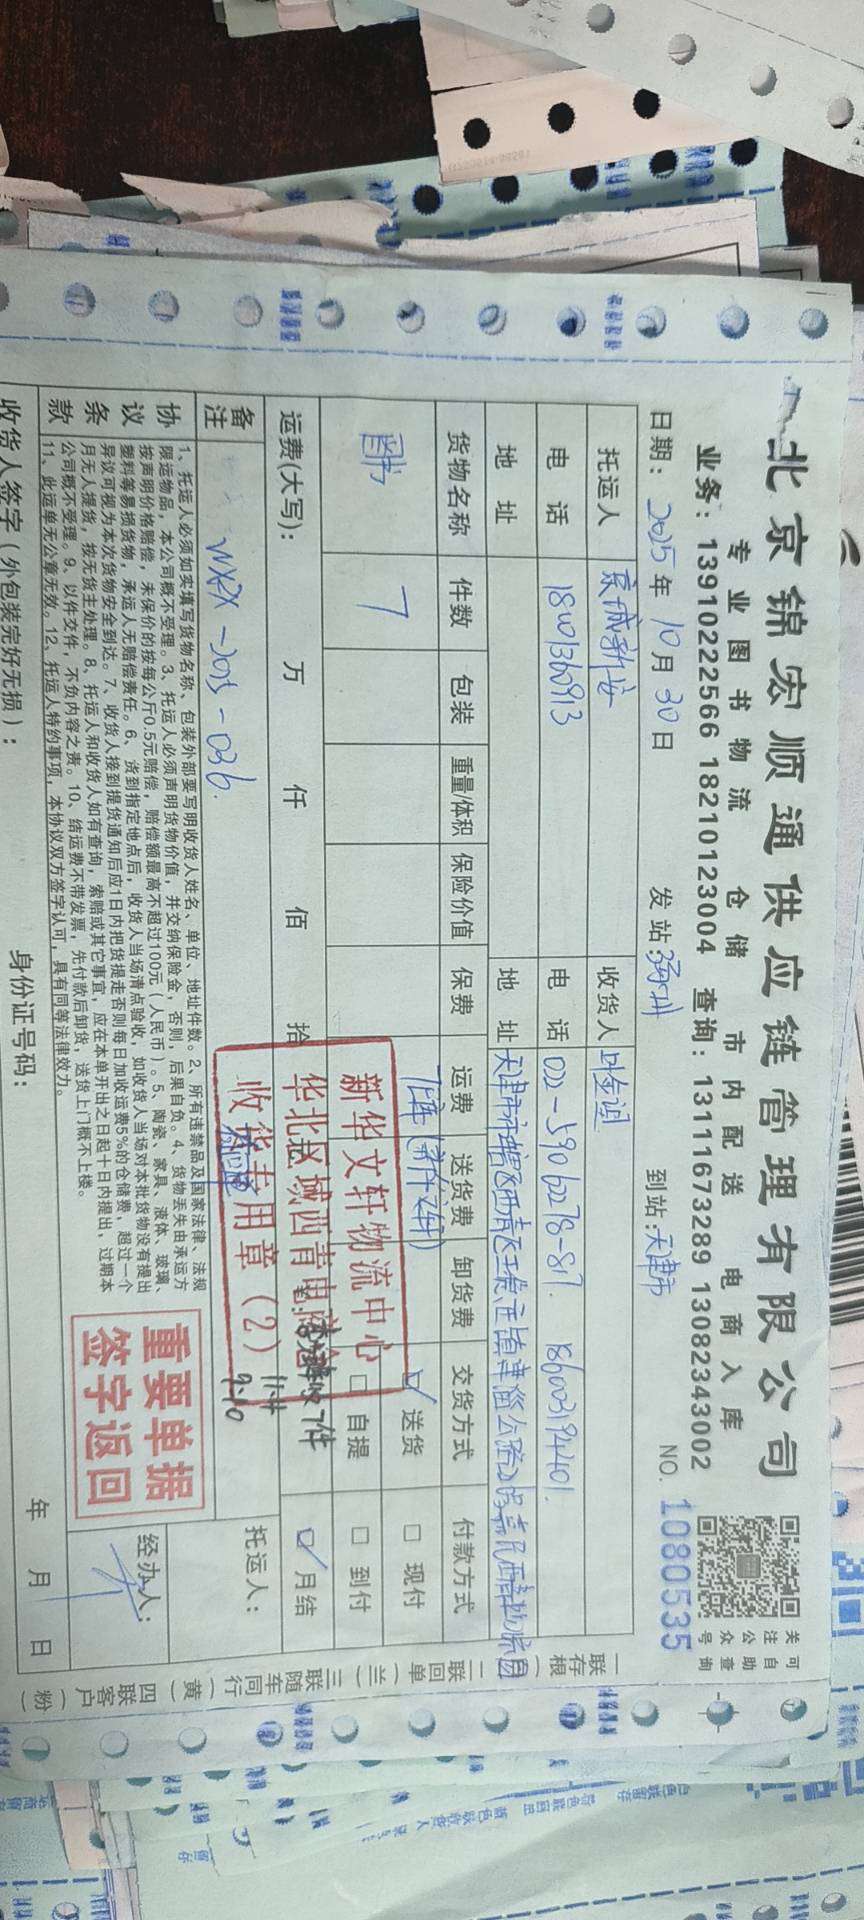 北京锦宏顺通供应链管理有限公司
专业图书物流 仓储 市内配送 电商入库
业务：13910222566 18210123004 查询：13111673289 13082343002
可自助查询
关注公众号
日期：2025年10月30日 发站： 到站：天津市 NO. 1080535
托运人 京城新安 收货人 叶金诏
电话 18001360913 电话 022-5906278-817. 186003194401.
地址 地址 天津市市辖区西青区王稳庄镇津淄公路
货物名称 件数 包装 重量/体积 保险价值 保费 运费 送货费 卸货费 交货方式 付款方式
图书 7 送货 自提 现付 到付 月结
运费(大写)： 万 仟 佰 拾
新华文轩物流中心
收货专用章（2）
7件
11.4
9:10
备注 WXZX-2025-036.
托运人：
协议条款
1、托运人必须如实填写货物名称、包装外部要写明收货人姓名、单位、地址件数。2、所有违禁品及国家法律、法规
限运物品，本公司概不受理。3、托运人必须声明货物价值，并交纳保险金，否则，后果自负。4、货物丢失由承运方
按声明价格赔偿，未保价的按每公斤0.5元赔偿，赔偿额最高不超过100元（人民币）。5、陶瓷、家具、液体、玻璃、
塑料等易损货物，承运人无赔偿责任。6、货到指定地点后，收货人当场清点验收，如收货人当场对本批货物没有提出
异议可视为本次货物安全到达。7、收货人接到提货通知后应1日内把货提走否则每日加收运费5%的仓储费，超过一个
月无人提货，按无货主处理。8、托运人和收货人如有查询，索赔或其它事宜，应在本单开出之日起十日内提出，过期本
公司概不受理。9、以件交件，不负内容之责。10、结运费不带发票，先付款后卸货，送货上门概不上楼。
11、此运单无公章无效。12、托运人特约事项，本协议双方签字认可，具有同等法律效力。
重要单据
签字返回
经办人：
收货人签字（外包装完好无损）： 身份证号码： 年 月 日
一联存根（ 二联回单（兰） 三联随车同行（黄） 四联客户（粉）